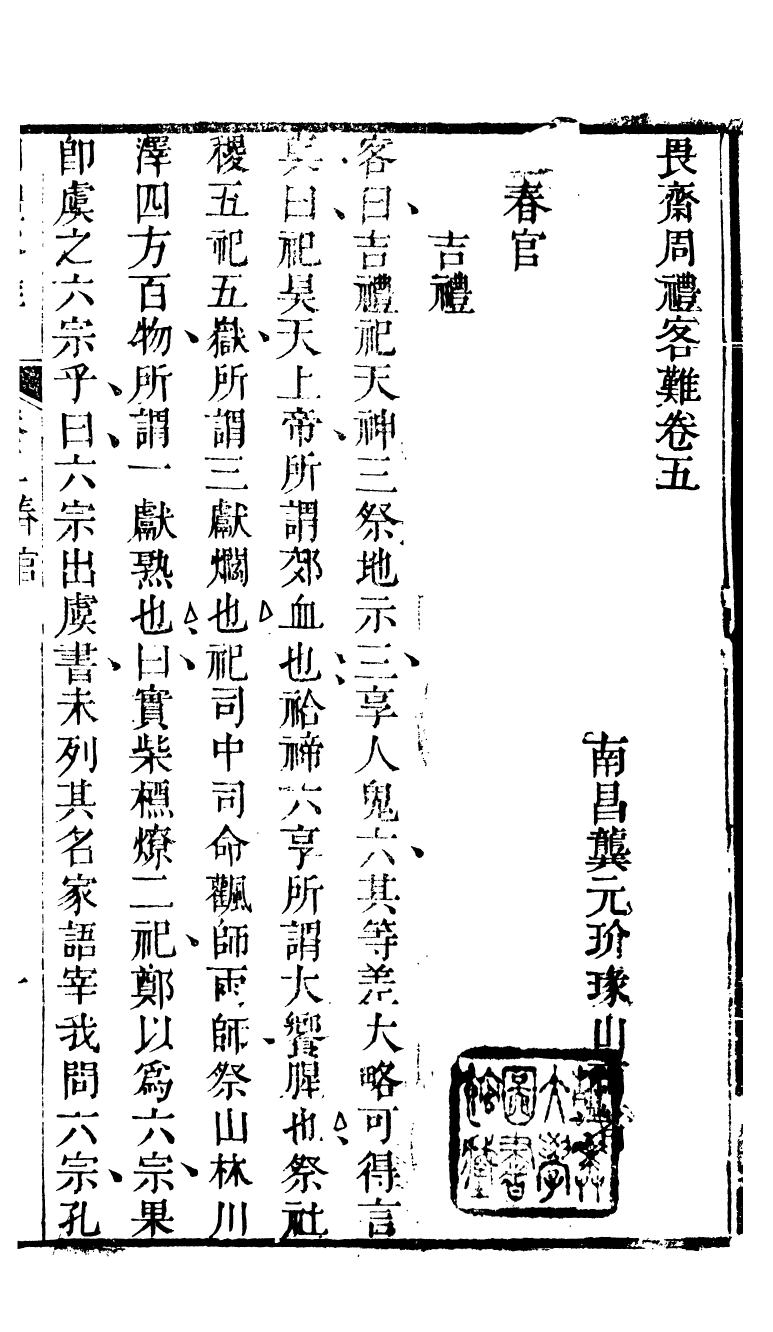 畏齋周禮客難卷五
南昌龔元玠瑑山
春官
吉禮
客曰吉禮祀天神三祭地示三享人鬼六其等差大略可得言
與曰祀昊天上帝所謂郊血也祫禘六享所謂大饗腥也祭社
稷五祀五嶽所謂三獻爓也祀司中司命飌師雨師祭山林川
澤四方百物所謂一獻熟也曰實柴槱燎二祀鄭以爲六宗果
卽虞之六宗乎曰六宗出虞書未列其名家語宰我問六宗孔
春官